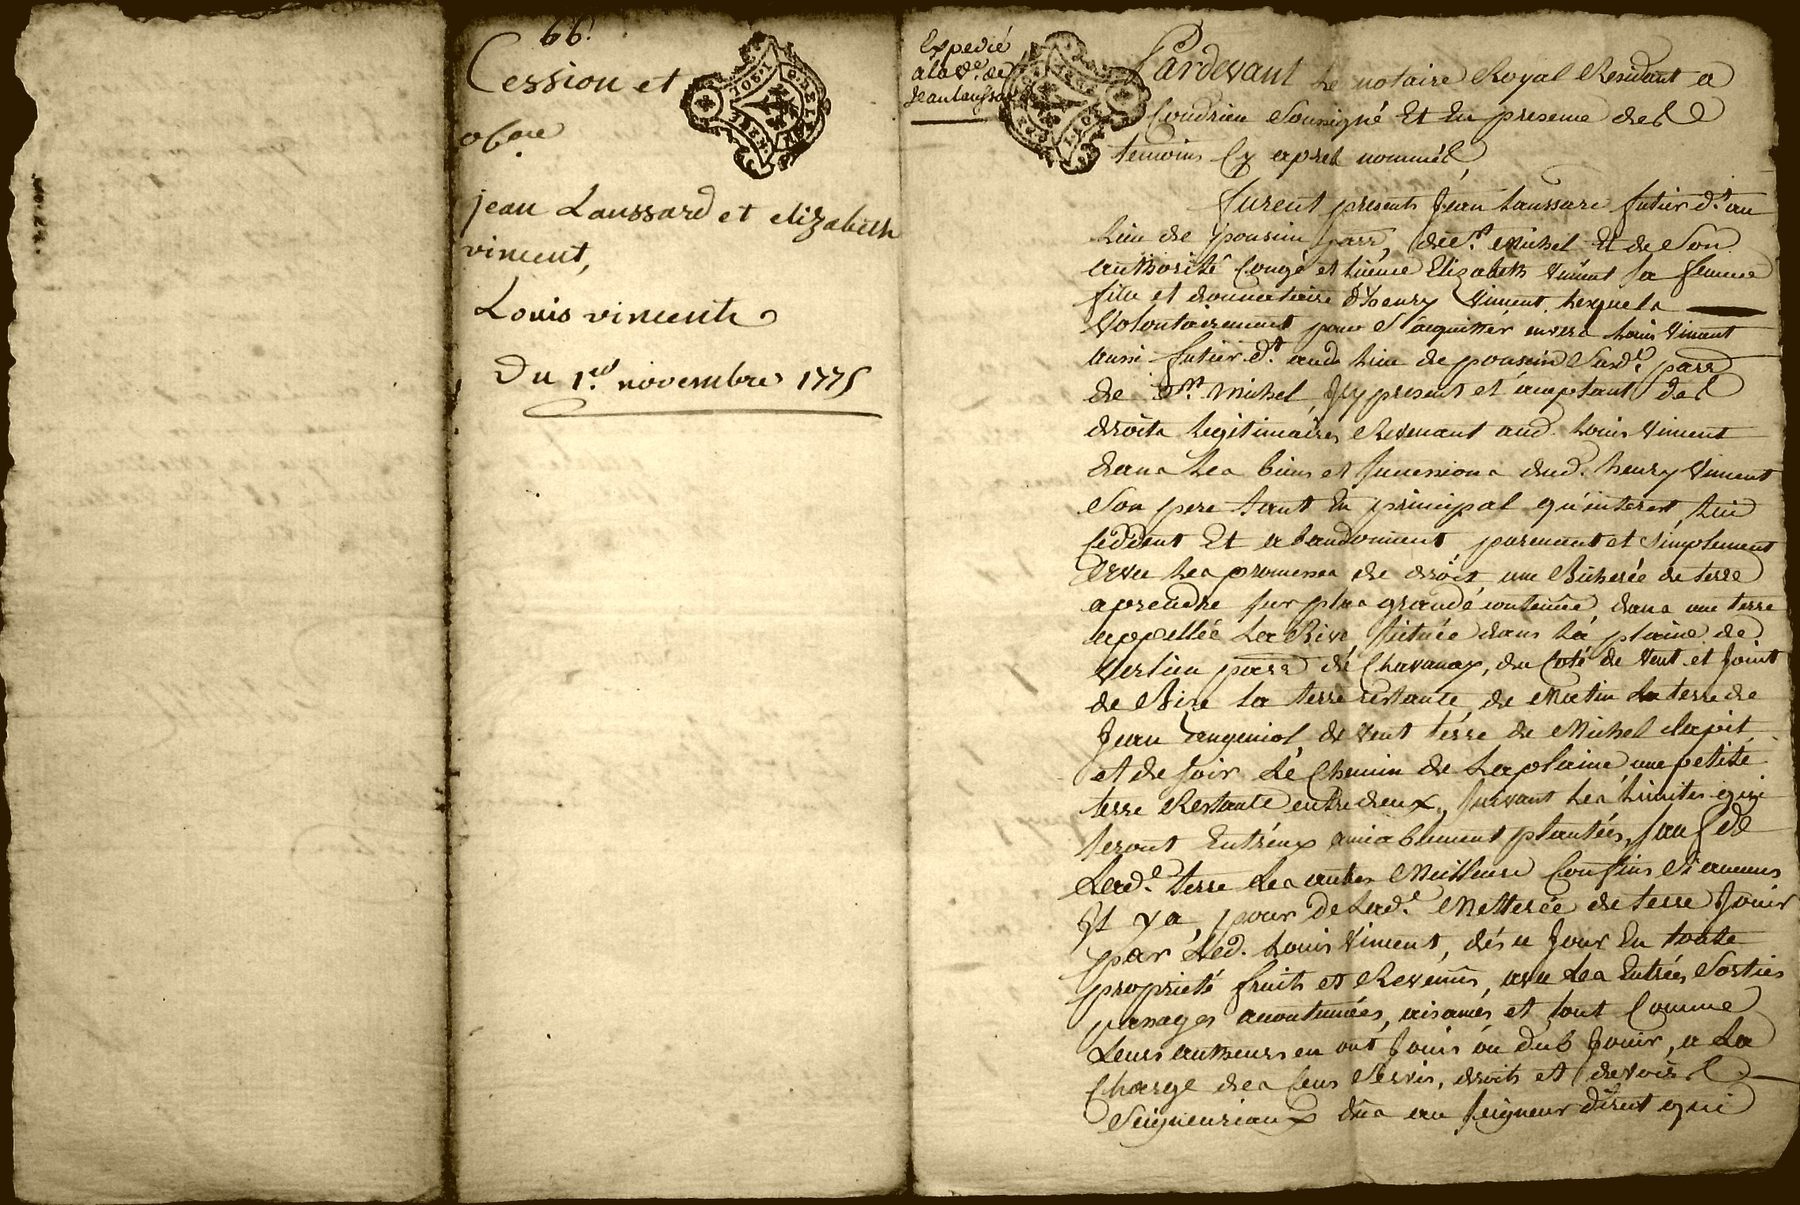 66.
Cession et
obon
jean Laussard et elizabeth
vincent,
Louis vincent
Du 1.er novembre 1775
Expedié
a la d.e de
Jean Laussar
Pardevant Le notaire Royal Residant a
Condrieu Soussigné Et En presence des
temoins Cy apres nommés
furent presents Jean Laussard d.t au
lieu de parr, Michel Et de Son
authorité Congé et licence Elizabeth Vincent sa femme
fille et donnataire d'henry Vincent, lesquels
Volontairement pour S'acquitter envers Louis Vincent
aussi d.t aud. lieu de Susd.e parr
de S.t Michel, Jcy present et acceptant des
droits Legitimaires Revenant aud. Louis Vincent
dans Les biens et Successions dud. henry Vincent
Son pere tant En principal qu'interest, lui
Cèddent Et abandonnent purement et Simplement
avec Les promesses de droit une Bicherée de terre
a prendre sur plus grande contenüe dans une terre
appellée La Rive Scituée dans La plaine de
Verlieu parr de Chavanay, du Coté de Vent et Joint
de Bize La terre restante, de Matin La terre de
Jean de Vent terre de Michel
et de soir Le Chemin de La plaine une petite
terre Restante entredeux, suivant Les Limites qui
seront Entr'eux amiablement plantées, sauf de
Lad.e terre Les autres Meilleurs Confins Si aucuns
Jl y a, pour de Lad.e Metterée de terre Jouir
par Led. Louis Vincent, dés ce Jour En toutte
proprieté fruits et Revenus, avec Les Entrées Sorties
passages accoutumées, aisances et tout Comme
Leurs autheurs en ont Jouis ou dub Jouir, a La
Charge des Cens Servis, droits et devoirs
Seigneuriaux düs au Seigneur direct qui